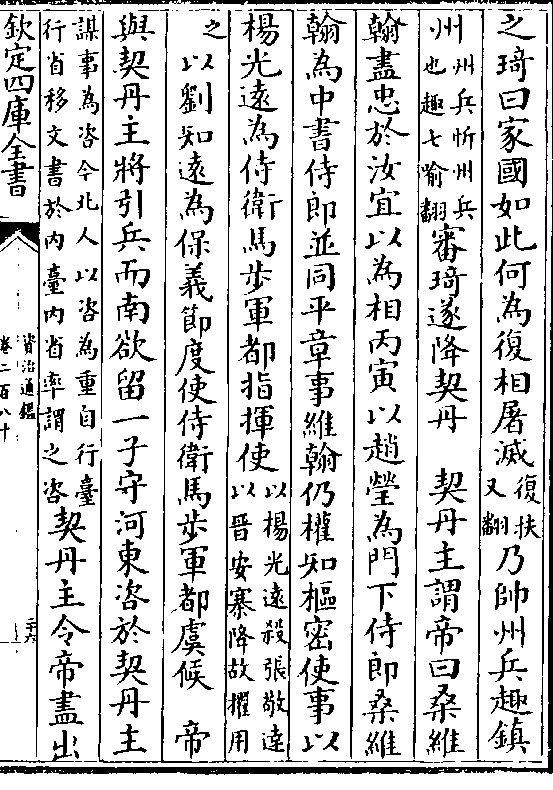 之琦曰家國如此何為復相屠滅復扶又翻乃帥州兵趣鎮
州州兵忻州兵也趣七喻翻審琦遂降契丹　契丹主謂帝曰桑維
翰盡忠於汝宜以為相丙寅以趙瑩為門下侍郎桑維
翰為中書侍郎並同平章事維翰仍權知樞密使事以
楊光遠為侍衛馬步軍都指揮使以楊光遠殺張敬達以晉安寨降故擢用
之以劉知遠為保義節度使侍衛馬步軍都虞候　帝
與契丹主將引兵而南欲留一子守河東咨於契丹主
謀事為咨今北人以咨為重自行臺行省移文書於內臺內省率謂之咨契丹主令帝盡出
欽定四庫全書
資治通鑑
卷二百八十
二十六